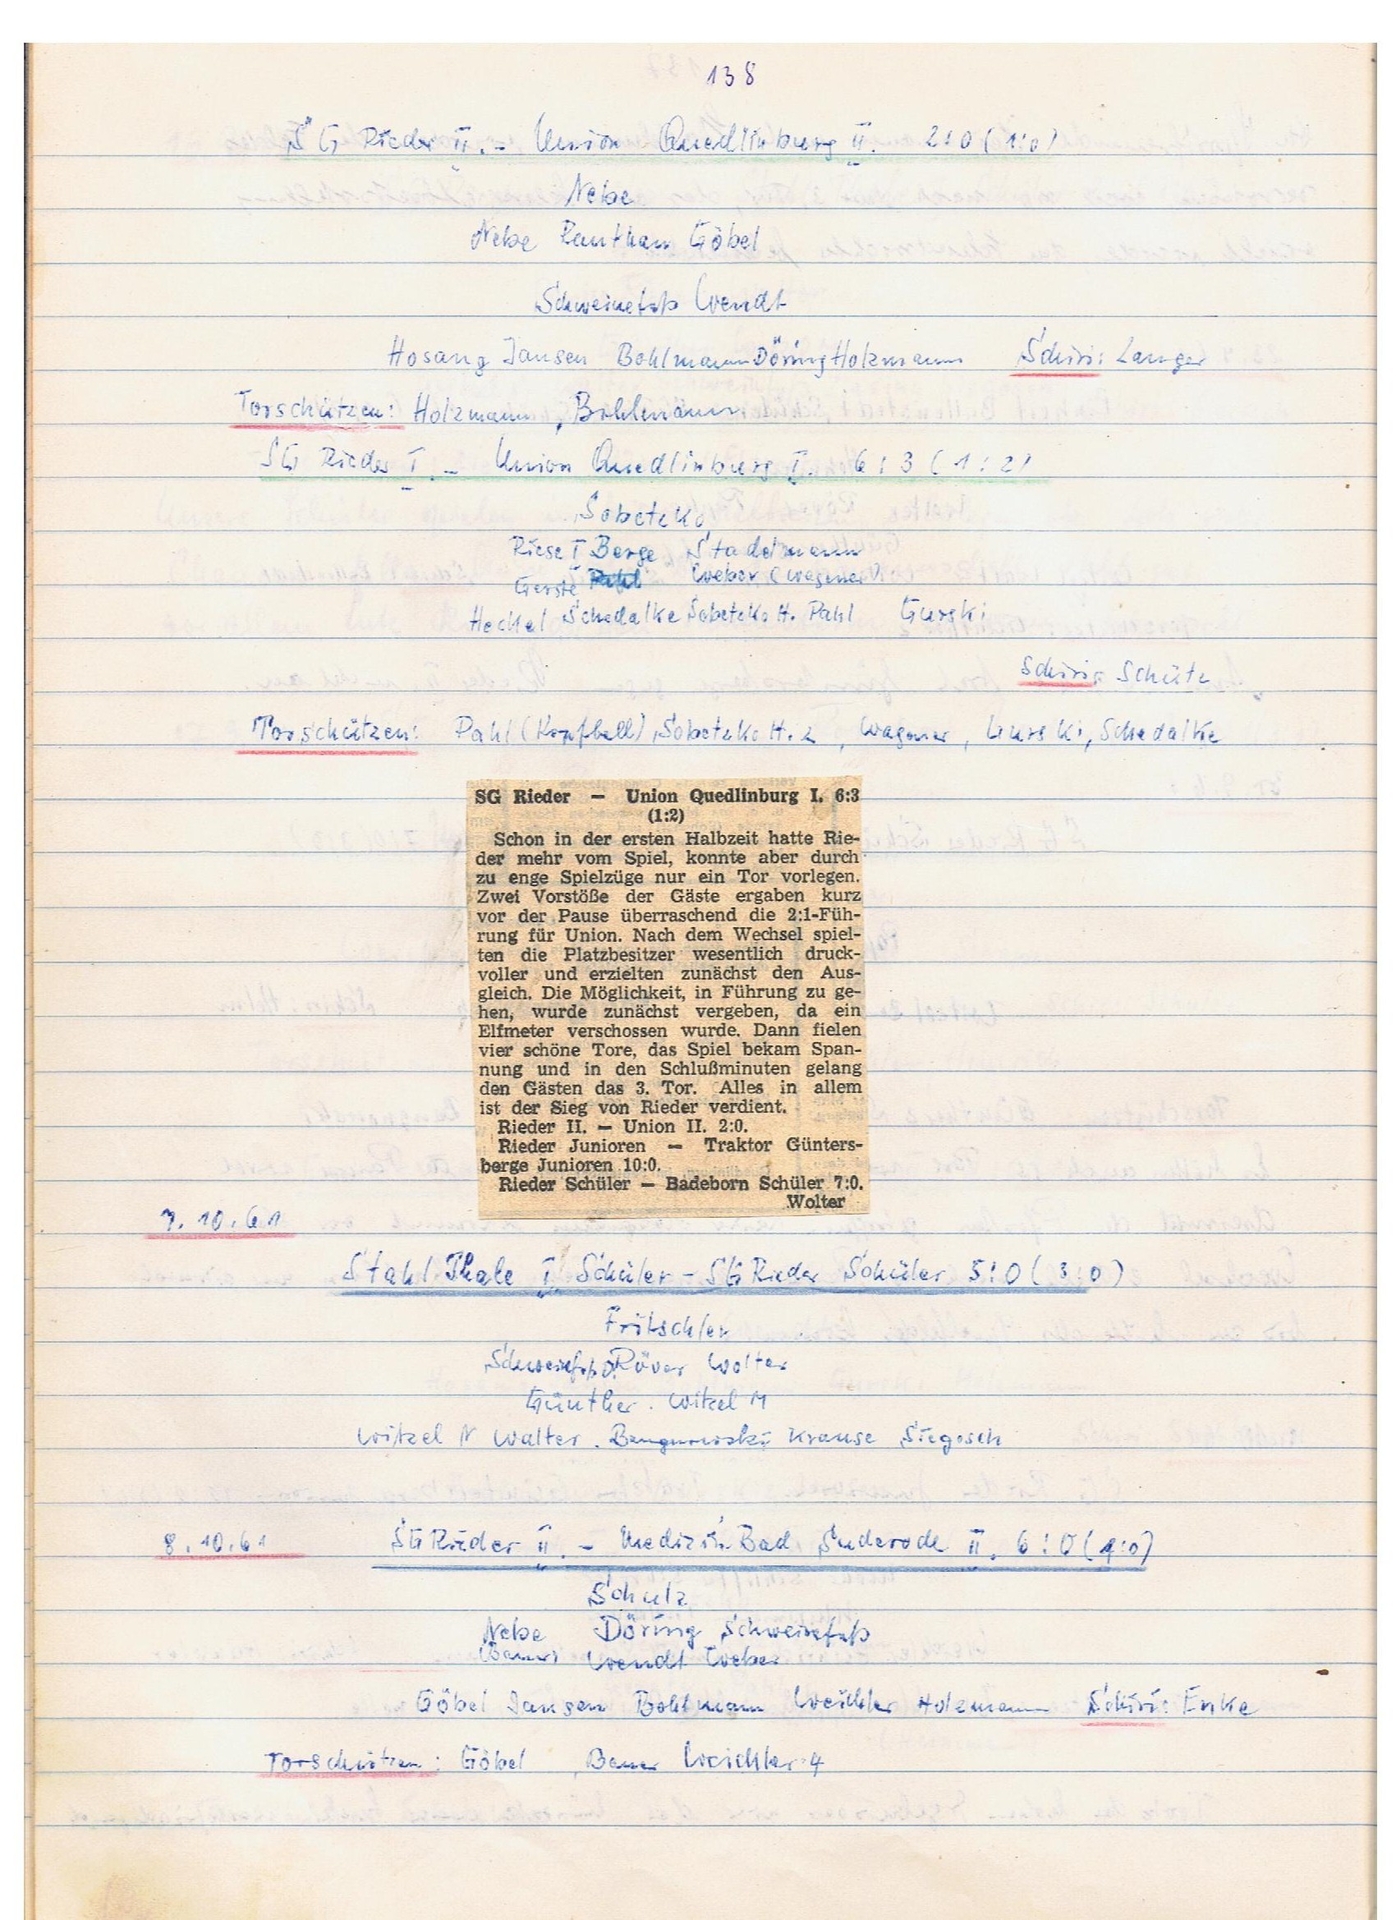 138
SG Rieder II. - Union Quedlinburg II. 2:0 (1:0)
Nebe
Nebe Pantham Göbel
Schweinefuß Wendt
Hosang Jansen Bohlmann Döring Holzmann Schiri: Langer
Torschützen: Holzmann, Bohlmann
SG Rieder I. - Union Quedlinburg I. 6:3 (1:2)
Sobetzko
Riese I Berge Stadelmann
Gerste Pahl Weber (Wagener)
Heckel Schedalke Sobetzko H. Pahl Gurski
Schiri: Schütz
Torschützen: Pahl (Kopfball), Sobetzko H. 2, Wagener, Gurski, Schedalke
SG Rieder — Union Quedlinburg I. 6:3
(1:2)
Schon in der ersten Halbzeit hatte Rie-
der mehr vom Spiel, konnte aber durch
zu enge Spielzüge nur ein Tor vorlegen.
Zwei Vorstöße der Gäste ergaben kurz
vor der Pause überraschend die 2:1-Füh-
rung für Union. Nach dem Wechsel spiel-
ten die Platzbesitzer wesentlich druck-
voller und erzielten zunächst den Aus-
gleich. Die Möglichkeit, in Führung zu ge-
hen, wurde zunächst vergeben, da ein
Elfmeter verschossen wurde. Dann fielen
vier schöne Tore, das Spiel bekam Span-
nung und in den Schlußminuten gelang
den Gästen das 3. Tor. Alles in allem
ist der Sieg von Rieder verdient.
Rieder II. — Union II. 2:0.
Rieder Junioren — Traktor Günters-
berge Junioren 10:0.
Rieder Schüler — Badeborn Schüler 7:0.
Wolter
7.10.61
Stahl Thale I. Schüler - SG Rieder Schüler 5:0 (3:0)
Fritschler
Schweinefuß Röver Wolter
Günther. Witzel M
Witzel N Walter. Bangnowski Krause Siegosch
8.10.61 SG Rieder II. - Medizin Bad Suderode II. 6:0 (4:0)
Schulz
Nebe Döring Schweinefuß
(Bauer) Wendt Weber
Göbel Jansen Bohlmann Weichler Holzmann Schiri: Enke
Torschützen: Göbel, Bauer Weichler 4